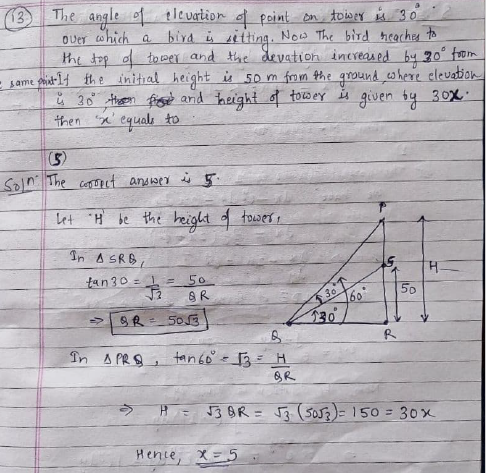 (13) The angle of elevation of point on tower is 30°
over which a bird is sitting. Now The bird reaches to
the top of tower and the elevation increased by 30° from
same point. If the initial height is 50 m from the ground where elevation
is 30° and height of tower is given by 30x.
then 'x' equals to
(5)
Soln. The correct answer is 5.
Let 'H' be the height of tower,
In Δ SRQ,
tan30 = 1/√3 = 50/QR
⇒ QR = 50√3
P
S
H
50
30°
60°
30°
Q
R
In Δ PRQ, tan60° = √3 = H/QR
⇒ H = √3 QR = √3 (50√3) = 150 = 30x
Hence, x = 5.